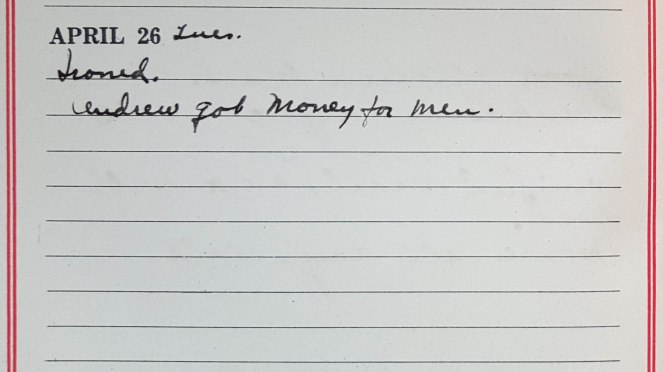 APRIL 26 Tues.
Ironed.
Andrew got Money for men.